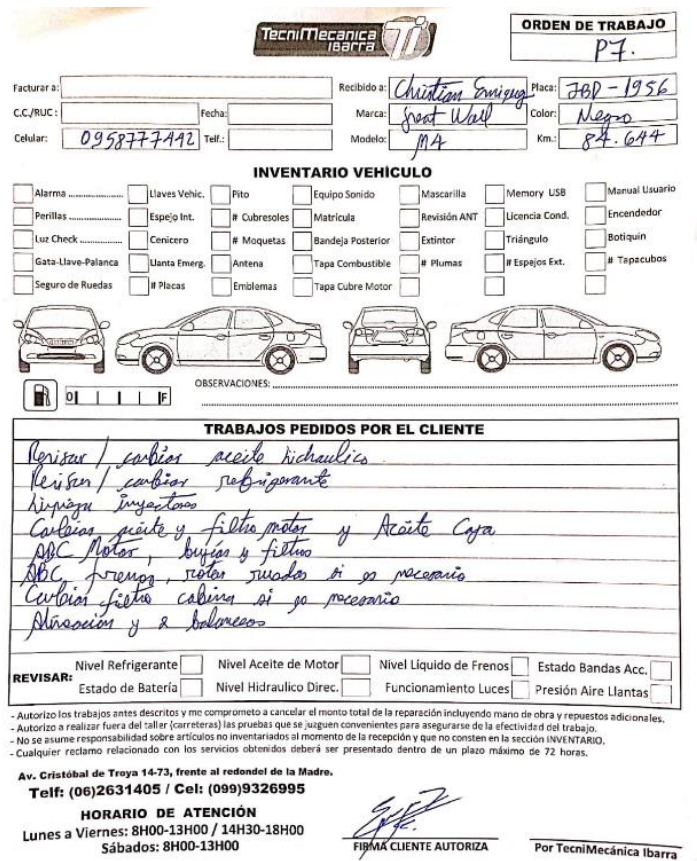 TecniMecanica
IBARRA
Ti
ORDEN DE TRABAJO
P7.
Facturar a:
Recibido a: Christian Enriquez
Placa: JBD-1956
C.C./RUC:
Fecha:
Marca: Great Wall
Color: Negro
Celular: 0958777442
Telf.:
Modelo: M4
Km.: 84.644
INVENTARIO VEHÍCULO
Alarma .................. Llaves Vehic. Pito Equipo Sonido Mascarilla Memory USB Manual Usuario
Perillas .................. Espejo Int. # Cubresoles Matrícula Revisión ANT Licencia Cond. Encendedor
Luz Check ............. Cenicero # Moquetas Bandeja Posterior Extintor Triángulo Botiquin
Gata-Llave-Palanca Llanta Emerg. Antena Tapa Combustible # Plumas # Espejos Ext. # Tapacubos
Seguro de Ruedas # Placas Emblemas Tapa Cubre Motor
0 F
OBSERVACIONES:
TRABAJOS PEDIDOS POR EL CLIENTE
Revisar / cambiar aceite hichaulico
Revisar / cambiar refrigerante
Limpieza inyectores
Cambiar aceite y filtro motor y Aceite Caja
ABC Motor, bujías y filtros
ABC frenos, rotar ruedas si es necesario
Cambiar filtro cabina si es necesario
Alineación y 2 balanceos
REVISAR:
Nivel Refrigerante Nivel Aceite de Motor Nivel Líquido de Frenos Estado Bandas Acc.
Estado de Batería Nivel Hidraulico Direc. Funcionamiento Luces Presión Aire Llantas
- Autorizo los trabajos antes descritos y me comprometo a cancelar el monto total de la reparación incluyendo mano de obra y repuestos adicionales.
- Autorizo a realizar fuera del taller (carreteras) las pruebas que se juzguen convenientes para asegurarse de la efectividad del trabajo.
- No se asume responsabilidad sobre artículos no inventariados al momento de la recepción y que no consten en la sección INVENTARIO.
- Cualquier reclamo relacionado con los servicios obtenidos deberá ser presentado dentro de un plazo máximo de 72 horas.
Av. Cristóbal de Troya 14-73, frente al redondel de la Madre.
Telf: (06)2631405 / Cel: (099)9326995
HORARIO DE ATENCIÓN
Lunes a Viernes: 8H00-13H00 / 14H30-18H00
Sábados: 8H00-13H00
FIRMA CLIENTE AUTORIZA
Por TecniMecánica Ibarra